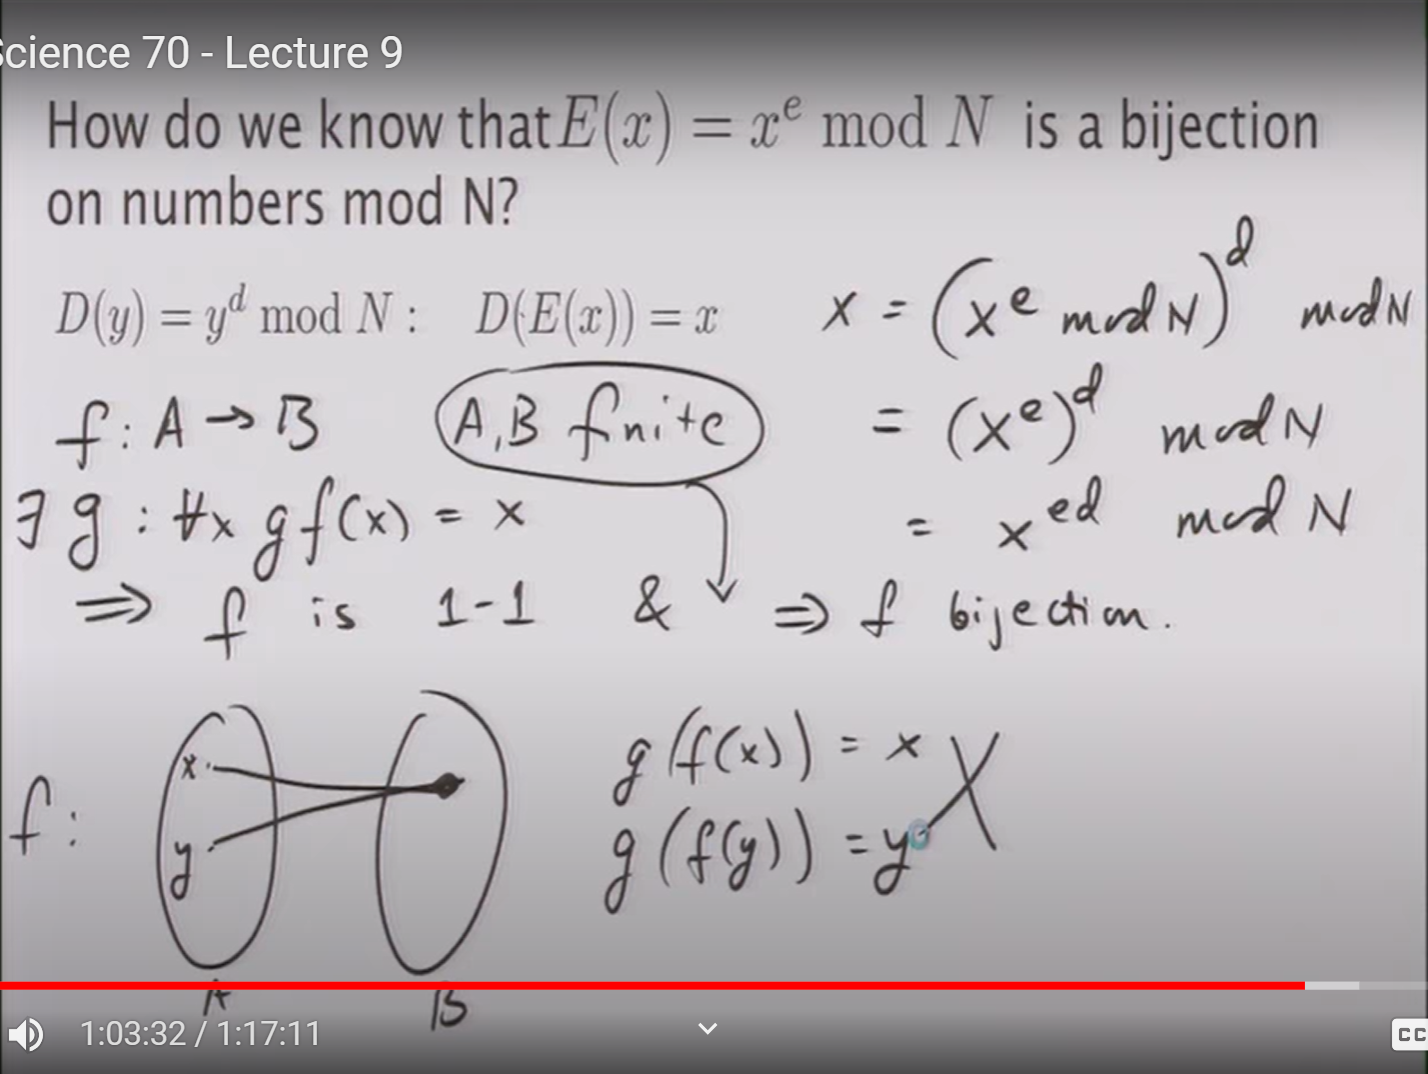 Science 70 - Lecture 9
How do we know that E(x) = x^e mod N is a bijection
on numbers mod N?
D(y) = y^d mod N : D(E(x)) = x
x = (x^e mod N)^d mod N
f: A → B
A, B finite
= (x^e)^d mod N
∃ g : ∀x g f(x) = x
= x^ed mod N
⇒ f is 1-1 & ⇒ f bijection.
f:
x
y
g(f(x)) = x
g(f(y)) = y
A
B
1:03:32 / 1:17:11
CC